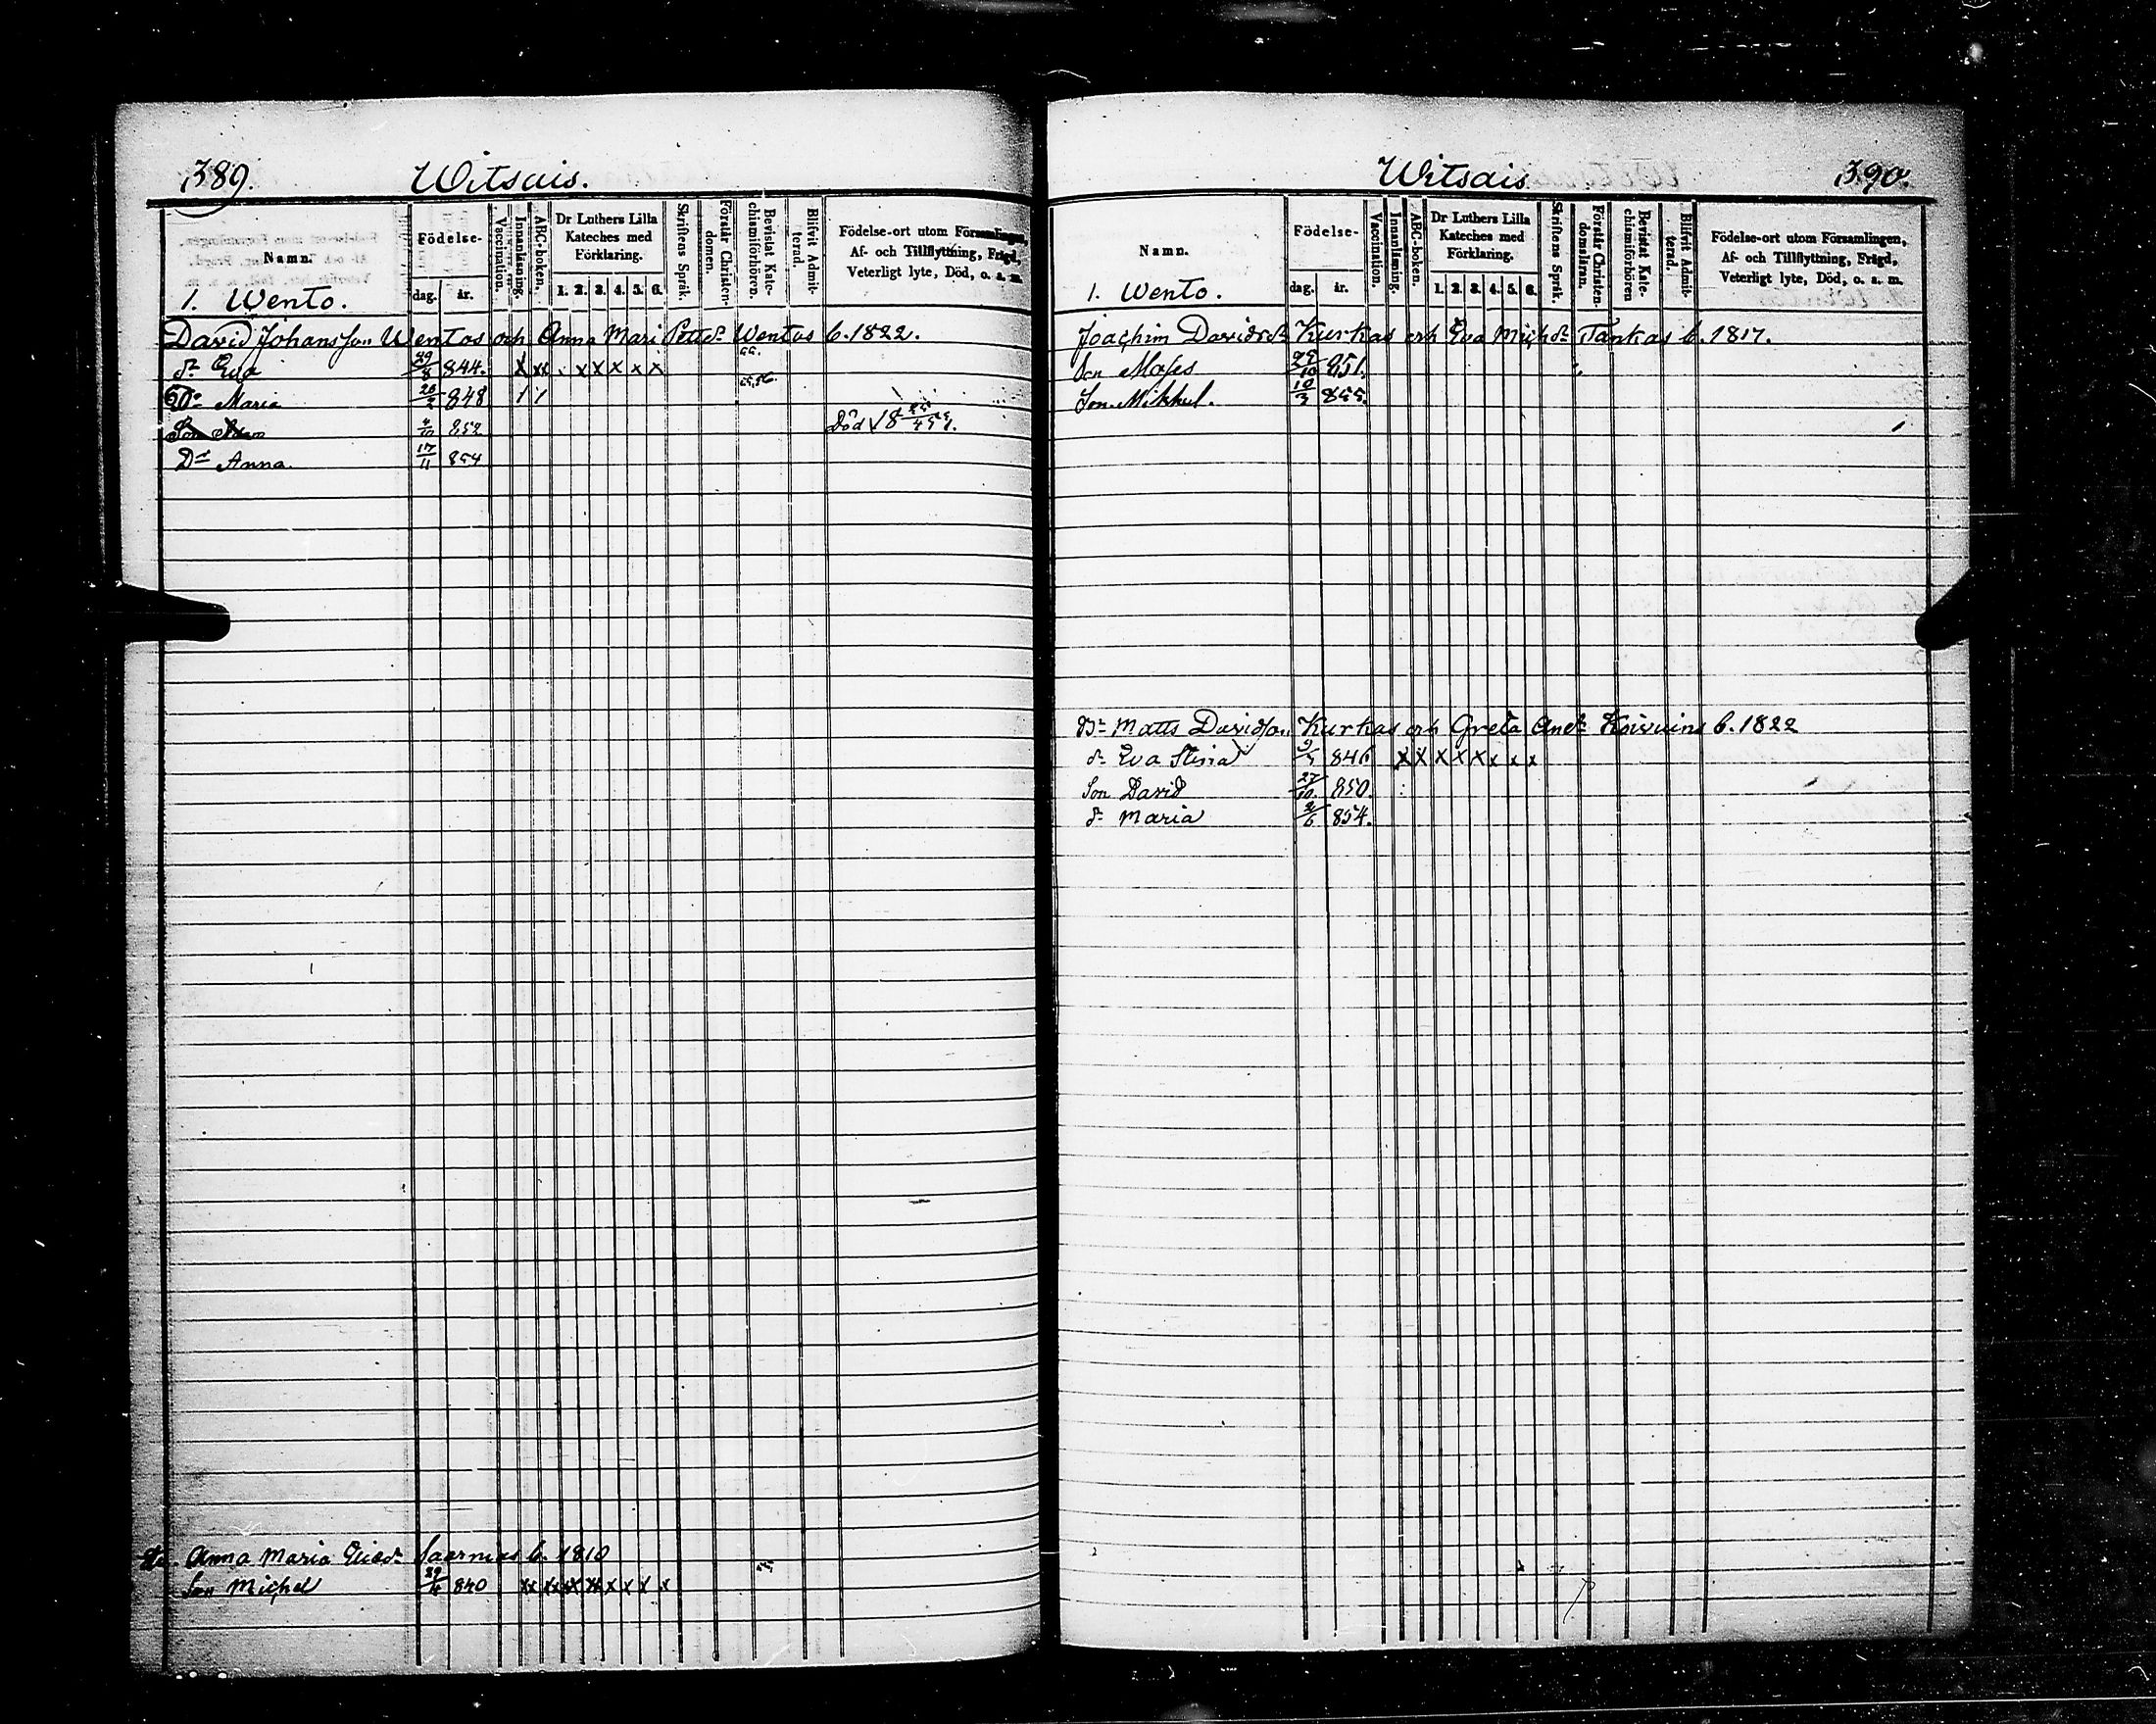 389. Witsais.
Namn.
Födelse-
dag. år.
Vaccination.
Innanläsning.
ABC-boken.
Dr Luthers Lilla Kateches med Förklaring.
1. 2. 3. 4. 5. 6.
Skriftens Språk.
Förstår Christen-domen.
Bevistat Kate-chismiförhören.
Blifvit Admit-terad.
Födelse-ort utom Församlingen,
Af- och Tillflyttning, Frägd,
Veterligt lyte, Död, o. s. m.
1. Wento.
David Johansson Wentos och Anna Mari Pettdr Wentos b. 1822.
dr Eva 29/8 844. x xx x x x x x
Dr Maria 848 / /
Son Adam 852 Död
Dr Anna. 17/11 854
Anna Maria Eliædr Saarnias b. 1810
Son Michel 840 xx x x x x x
Witsais 390.
Namn.
Födelse-
dag. år.
Vaccination.
Innanläsning.
ABC-boken.
Dr Luthers Lilla Kateches med Förklaring.
1. 2. 3. 4. 5. 6.
Skriftens Språk.
Förstår Christen-domsläran.
Bevistat Kate-chismiförhören
Blifvit Admit-terad.
Födelse-ort utom Församlingen,
Af- och Tillflyttning, Frägd,
Veterligt lyte, Död, o. s. m.
1. Wento.
Joachim Davidss Kurkas och Eva Michdr Tankas b. 1817.
Son Moses 851.
Son Mikkel. 10/3 855.
Br Matts Davidson Kurkas och Greta Anddr Koivuins b. 1822
dr Eva Stina 846 x x x x x x x x
Son David 27/10 850.
dr Maria 2/6 854.